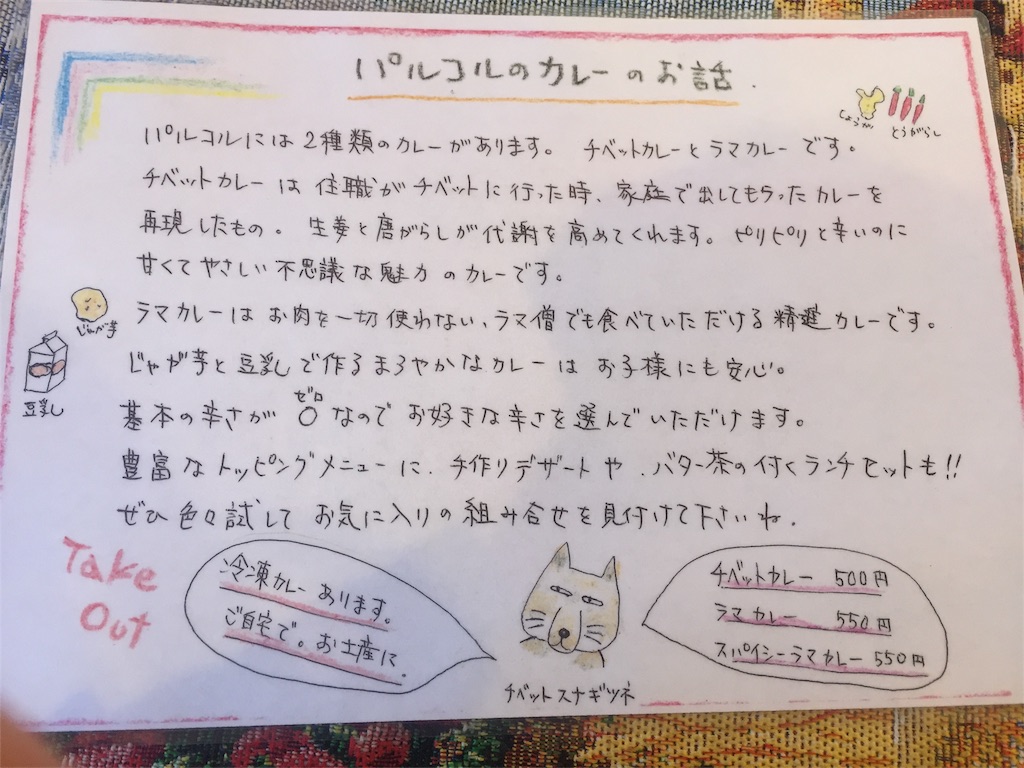 パルコルのカレーのお話.
しょうが
とうがらし
パルコルには2種類のカレーがあります。 チベットカレーとラマカレーです。
チベットカレーは住職がチベットに行った時、家庭で出してもらったカレーを
再現したもの。 生姜と唐がらしが代謝を高めてくれます。ピリピリと辛いのに
甘くてやさしい不思議な魅力のカレーです。
ラマカレーはお肉を一切使わない、ラマ僧でも食べていただける精進カレーです。
じゃが芋
じゃが芋と豆乳で作るまろやかなカレーはお子様にも安心。
豆乳
ゼロ
基本の辛さが0なのでお好きな辛さを選んでいただけます。
豊富なトッピングメニューに、手作りデザートや、バター茶の付くランチセットも!!
ぜひ色々試してお気に入りの組み合せを見付けて下さいね.
Take
Out
冷凍カレーあります。
ご自宅で。お土産に.
チベットスナギツネ
チベットカレー 500円
ラマカレー 550円
スパイシーラマカレー 550円